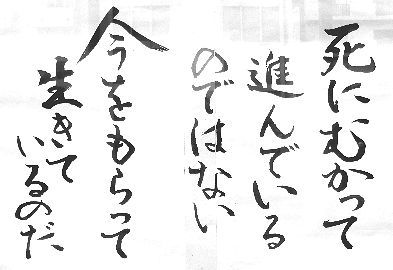 死にむかって
進んでいる
のではない
今をもらって
生きて
いるのだ